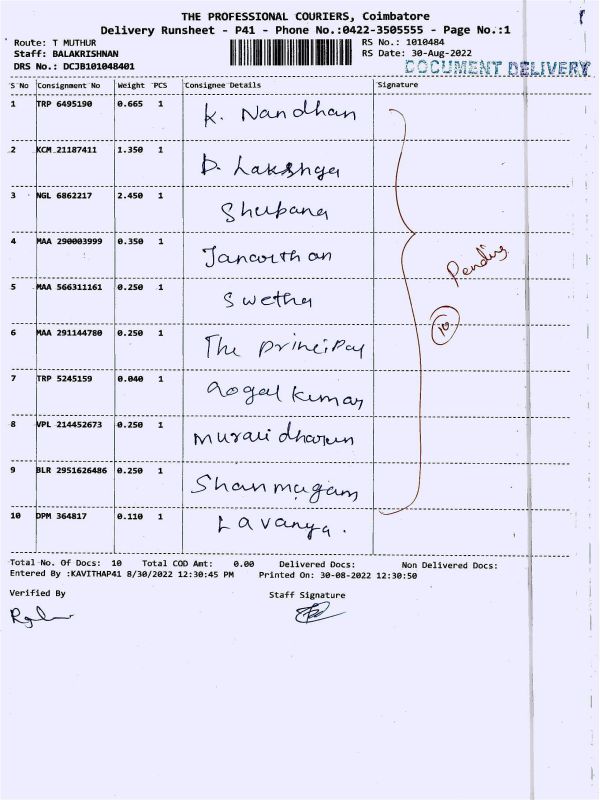 THE PROFESSIONAL COURIERS, Coimbatore
Delivery Runsheet - P41 - Phone No.:0422-3505555 - Page No.:1
Route: T MUTHUR RS No.: 1010484
Staff: BALAKRISHNAN RS Date: 30-Aug-2022
DRS No.: DCJB101048401 DOCUMENT DELIVERY
S No Consignment No Weight PCS Consignee Details Signature
1 TRP 6495190 0.665 1 K. Nandhan
2 KCM 21187411 1.350 1 D. Lakshya
3 NGL 6862217 2.450 1 Shubana
4 MAA 290003999 0.350 1 Janarthan
Pending
5 MAA 566311161 0.250 1 Swetha
10
6 MAA 291144780 0.250 1 The Principal
7 TRP 5245159 0.040 1 Gogal Kumar
8 VPL 214452673 0.250 1 Muralidharan
9 BLR 2951626486 0.250 1 Shanmugam
10 DPM 364817 0.110 1 Lavanya.
Total No. Of Docs: 10 Total COD Amt: 0.00 Delivered Docs: Non Delivered Docs:
Entered By :KAVITHAP41 8/30/2022 12:30:45 PM Printed On: 30-08-2022 12:30:50
Verified By Staff Signature